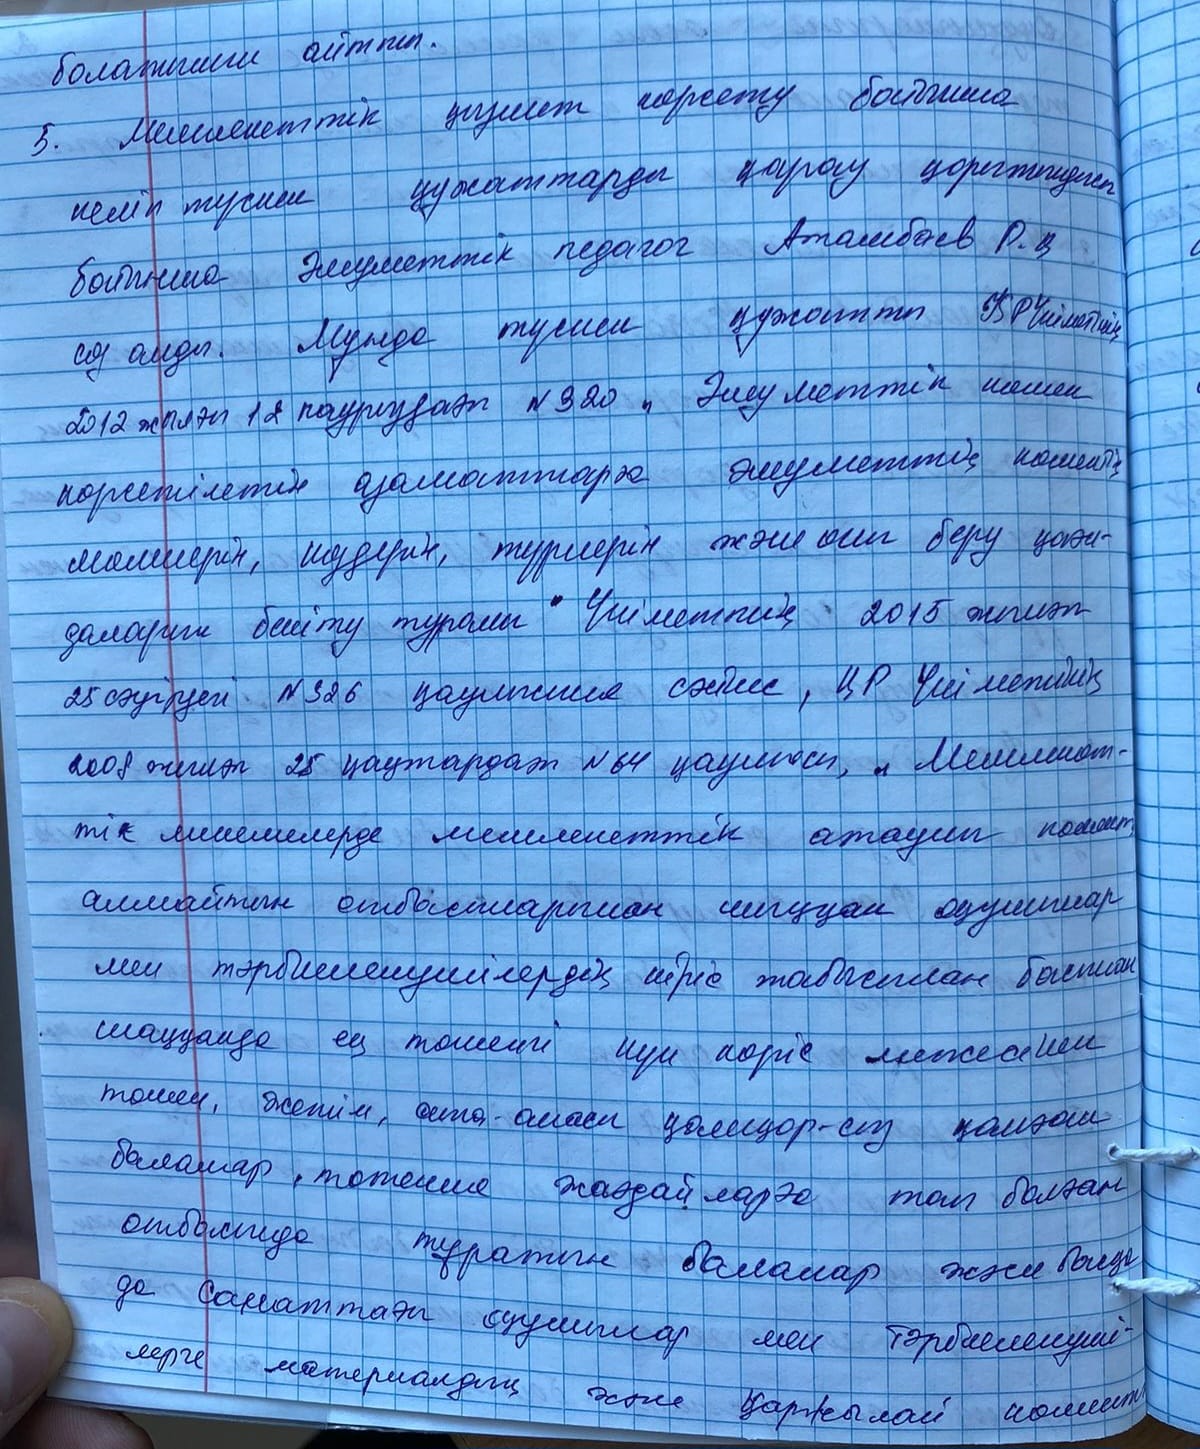 болатынын айтты.
5. Мемлекеттік қызмет көрсету бойынша
келіп түскен құжаттарды қарау қорытындысы
бойынша Әлеуметтік педагог Атамбаев Р.Қ
сөз алды. Мұнда түскен құжатты ҚР Үкіметінің
2012 жылғы 12 наурыздағы №320 „ Әлеуметтік көмек
көрсетілетін азаматтарға әлеуметтік көмектің
мөлшерін, көздерін, түрлерін және оны беру қағи-
даларын бекіту туралы " Үкіметтің 2015 жылғы
25 сәуірдегі №326 қаулысына сәйкес, ҚР Үкіметінің
2008 жылғы 25 қаңтардағы №64 қаулысы, „ Мемлекет-
тік мекемелерде мемлекеттік атаулы көмек
алмайтын отбасыларынан шыққан оқушылар
мен тәрбиеленушілердің кіріс табысынан баспана
шаққанда ең төменгі күн көріс межесінен
төмен, жетім, ата-анасы қамқор-сыз қалған
балалар, төтенше жағдайларға тап болған
отбасында тұратын балалар және басқа
да санаттағы оқушылар мен тәрбиеленуші-
лерге материалдық және қаржылай көмек